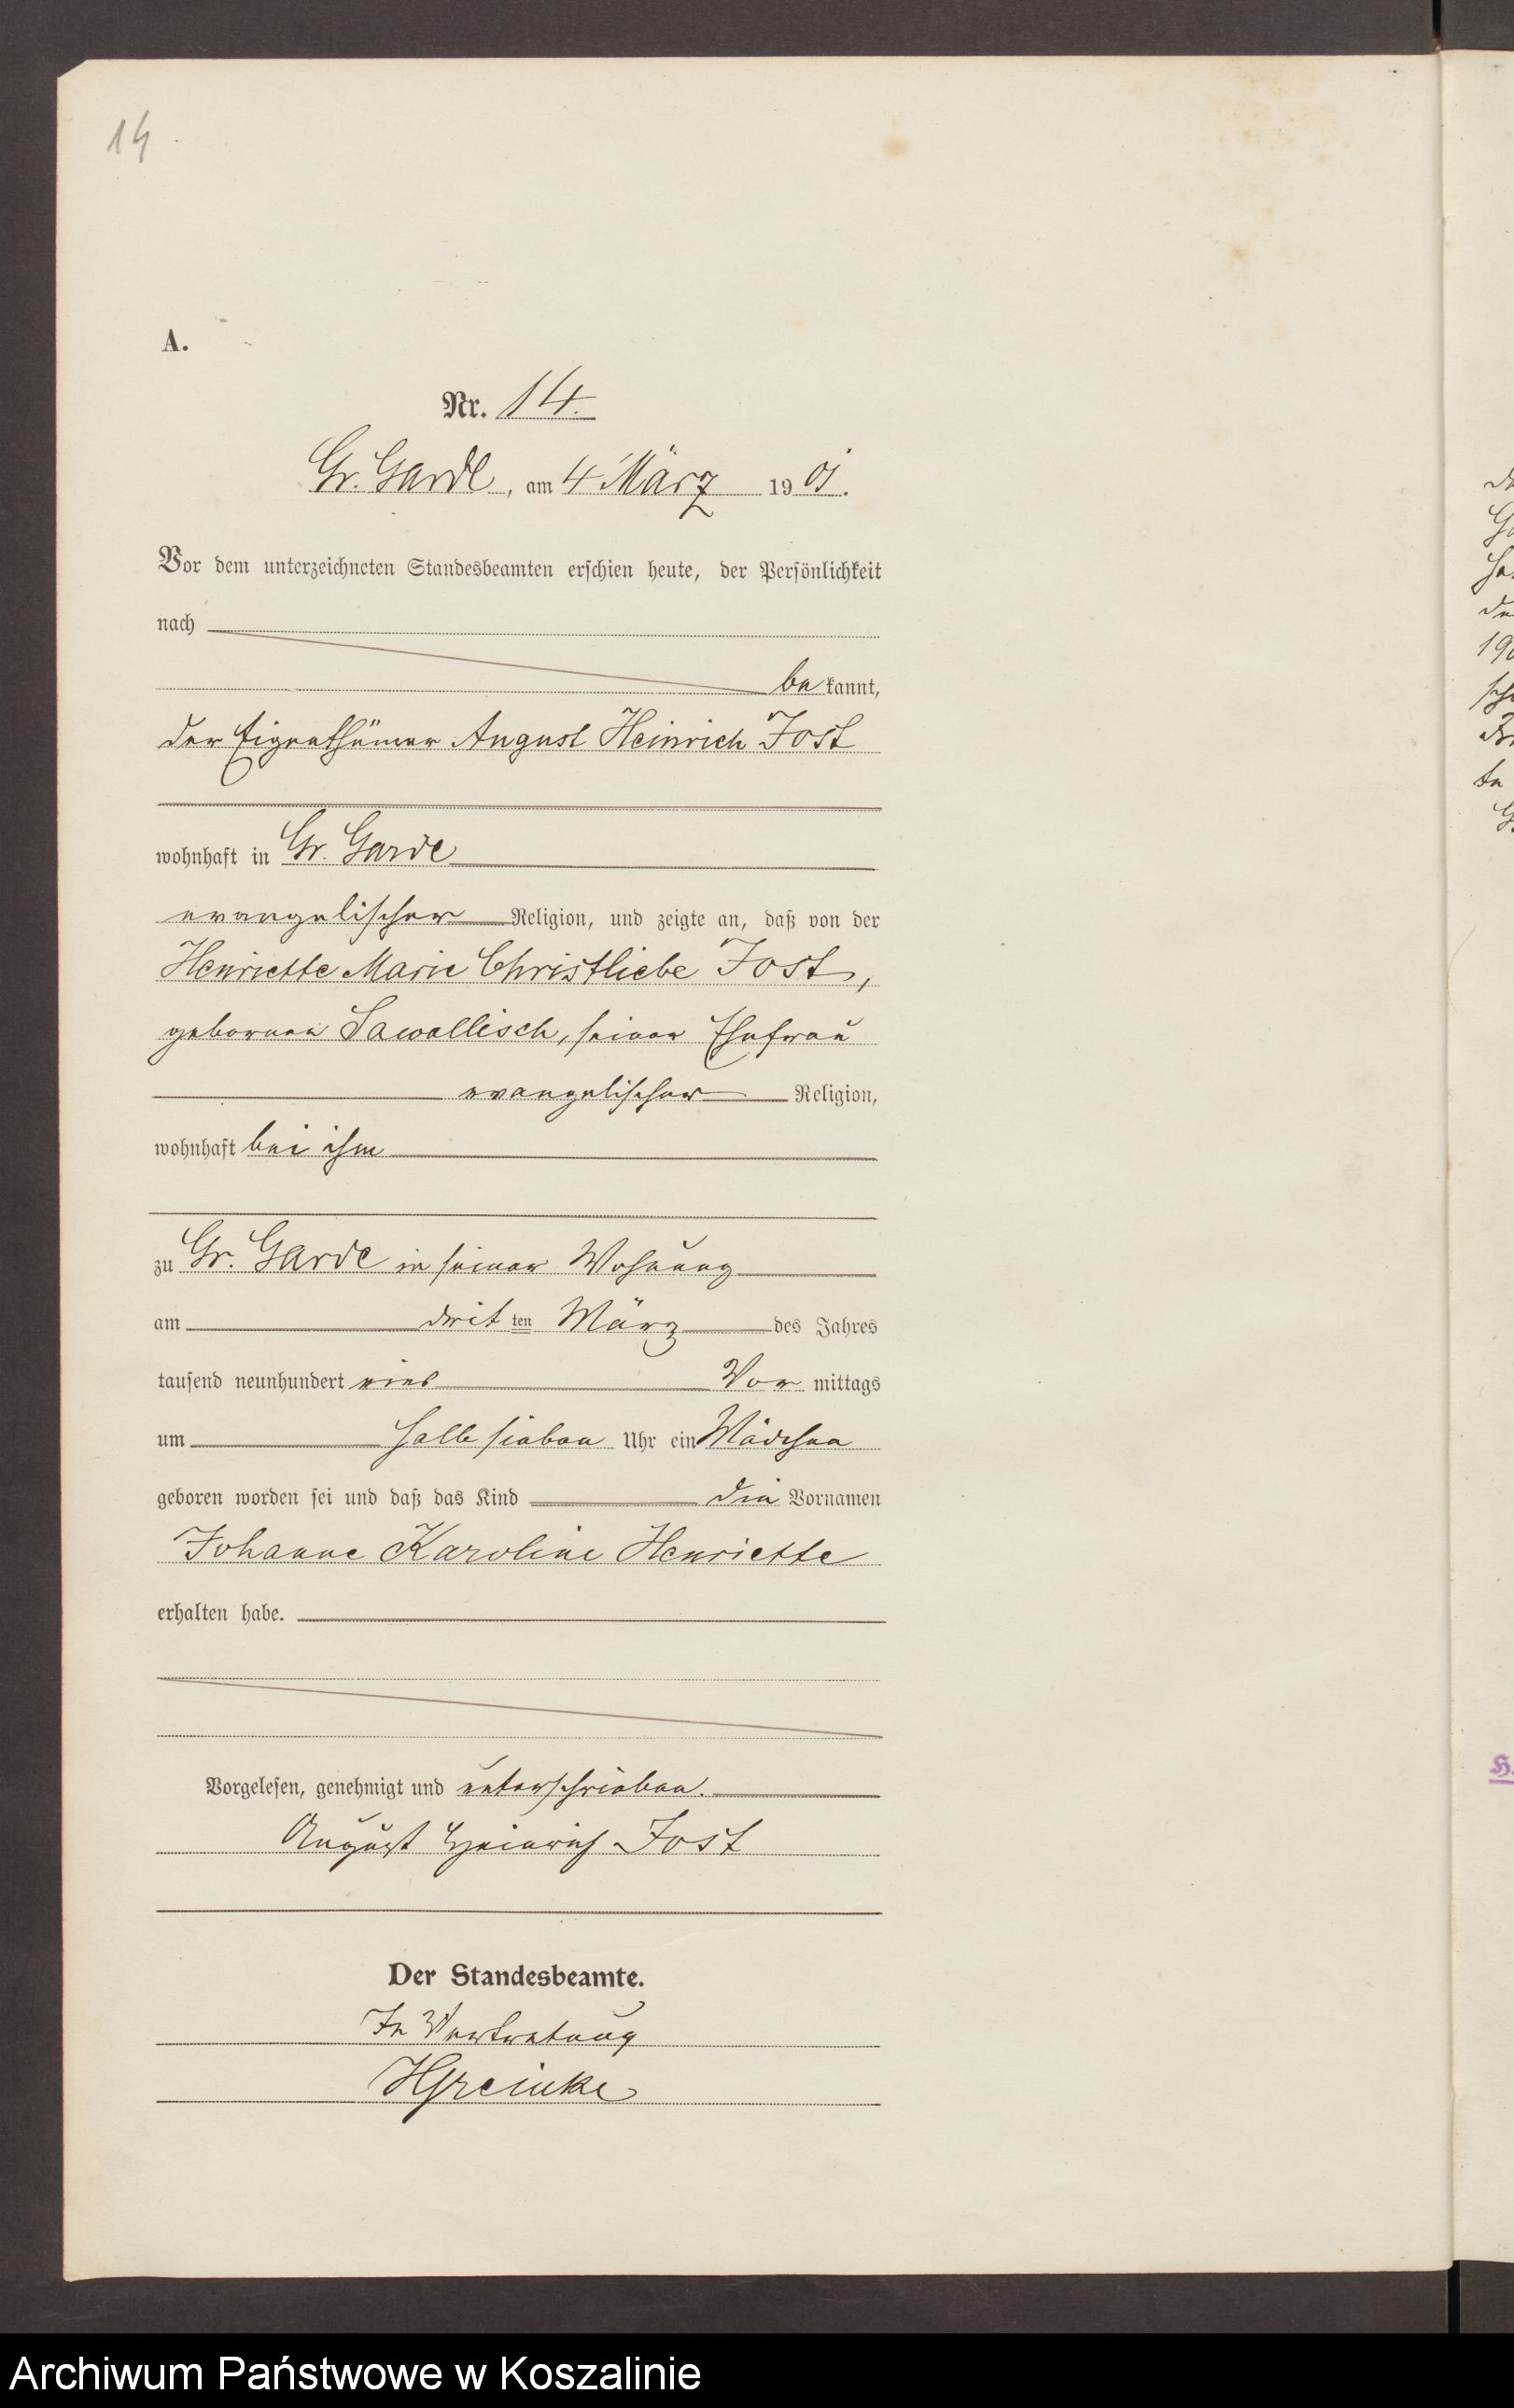 14
A.
Nr. 14.
Gr. Garde, am 4 März 1901.
Vor dem unterzeichneten Standesbeamten erschien heute, der Persönlichkeit
nach
be kannt,
der Eigenthümer August Heinrich Jost
wohnhaft in Gr. Garde
evangelischer Religion, und zeigte an, daß von der
Henriette Marie Christliebe Jost,
geborenen Sawallisch, seiner Ehefrau
evangelischer Religion,
wohnhaft bei ihm
zu Gr. Garde in seiner Wohnung
am dritten März des Jahres
tausend neunhundert eins Vor mittags
um halb sieben Uhr ein Mädchen
geboren worden sei und daß das Kind die Vornamen
Johanne Karoline Henriette
erhalten habe.
Vorgelesen, genehmigt und unterschrieben.
August Heinrich Jost
Der Standesbeamte.
In Vertretung
HGreinke
Archiwum Państwowe w Koszalinie